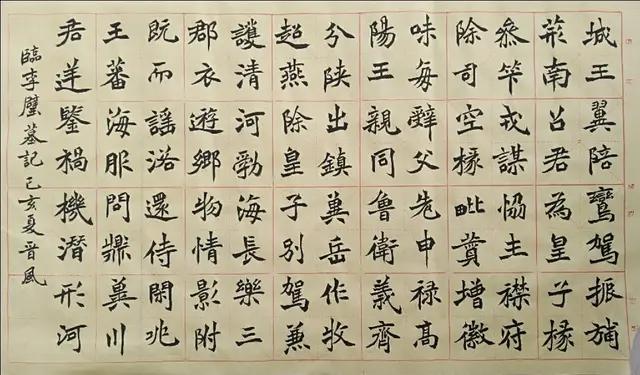 城王翼陪鸞駕振旆
荊南召君為皇子掾
叅笇戎謀恊主襟府
除司空掾毗賛增徽
味每辭父先申禄高
陽王親同魯衛義齊
分陝出鎮冀岳作牧
超燕除皇子別駕兼
護清河勃海長樂三
郡衣遊鄉物情影附
既而謡洛還侍閑兆
王蕃海服問鼎冀川
君逆鑒禍機潛形河
臨李璧墓記己亥夏晉風